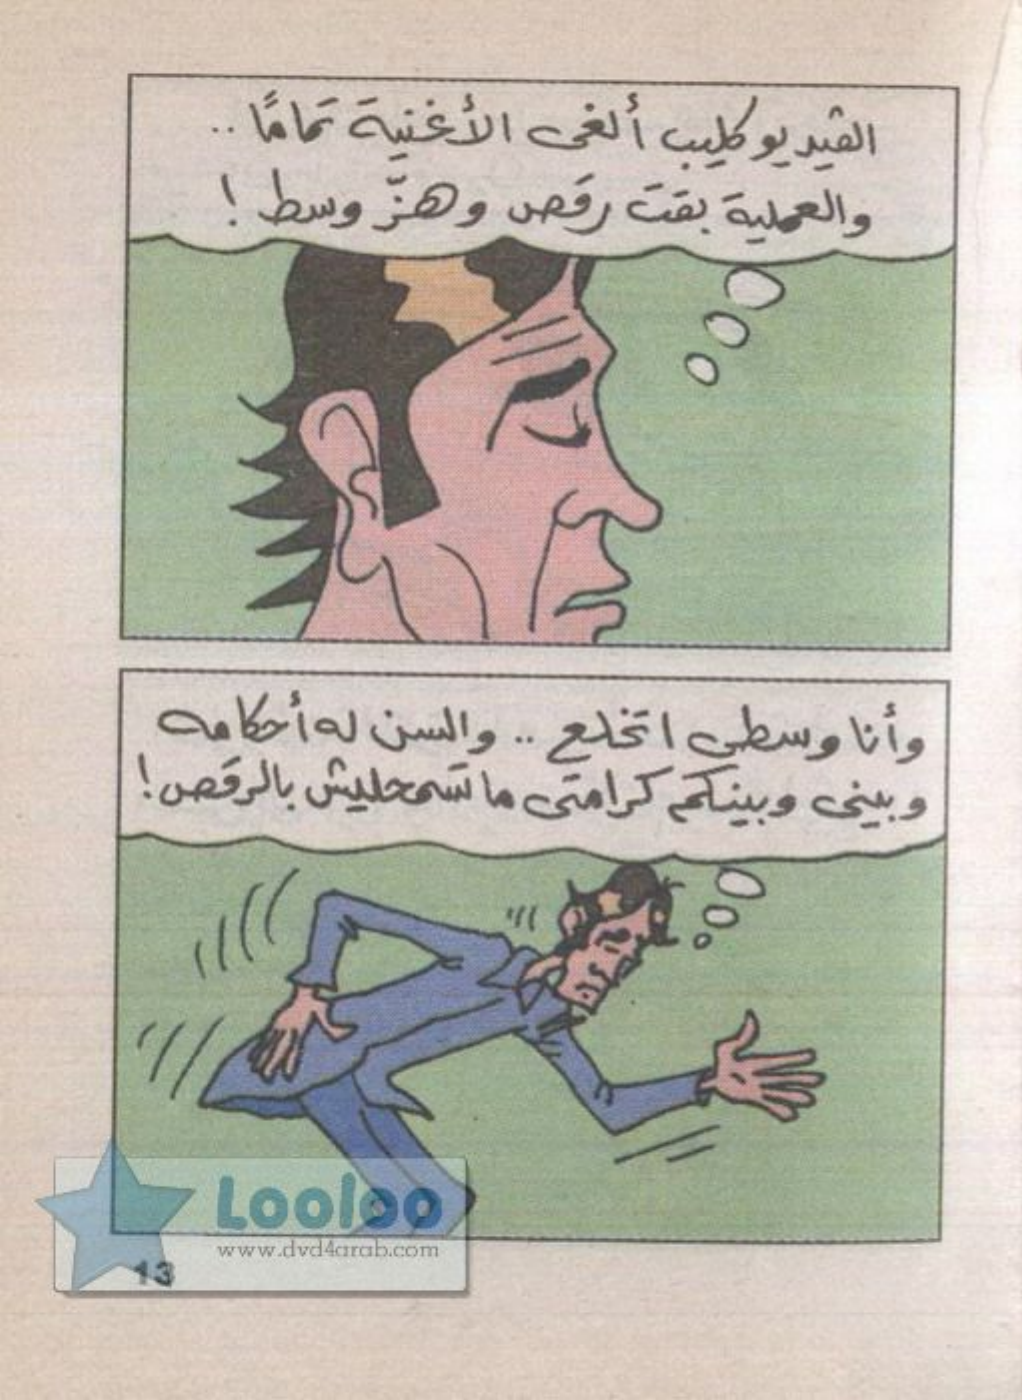 الڤيديو كليب ألغى الأغنية تمامًا ..
والعملية بقت رقص وهزّ وسط !
وأنا وسطى اتخلع .. والسن له أحكامه
وبينى وبينكم كرامتى ماتسمحليش بالرقص !
Looloo
www.dvd4arab.com
13